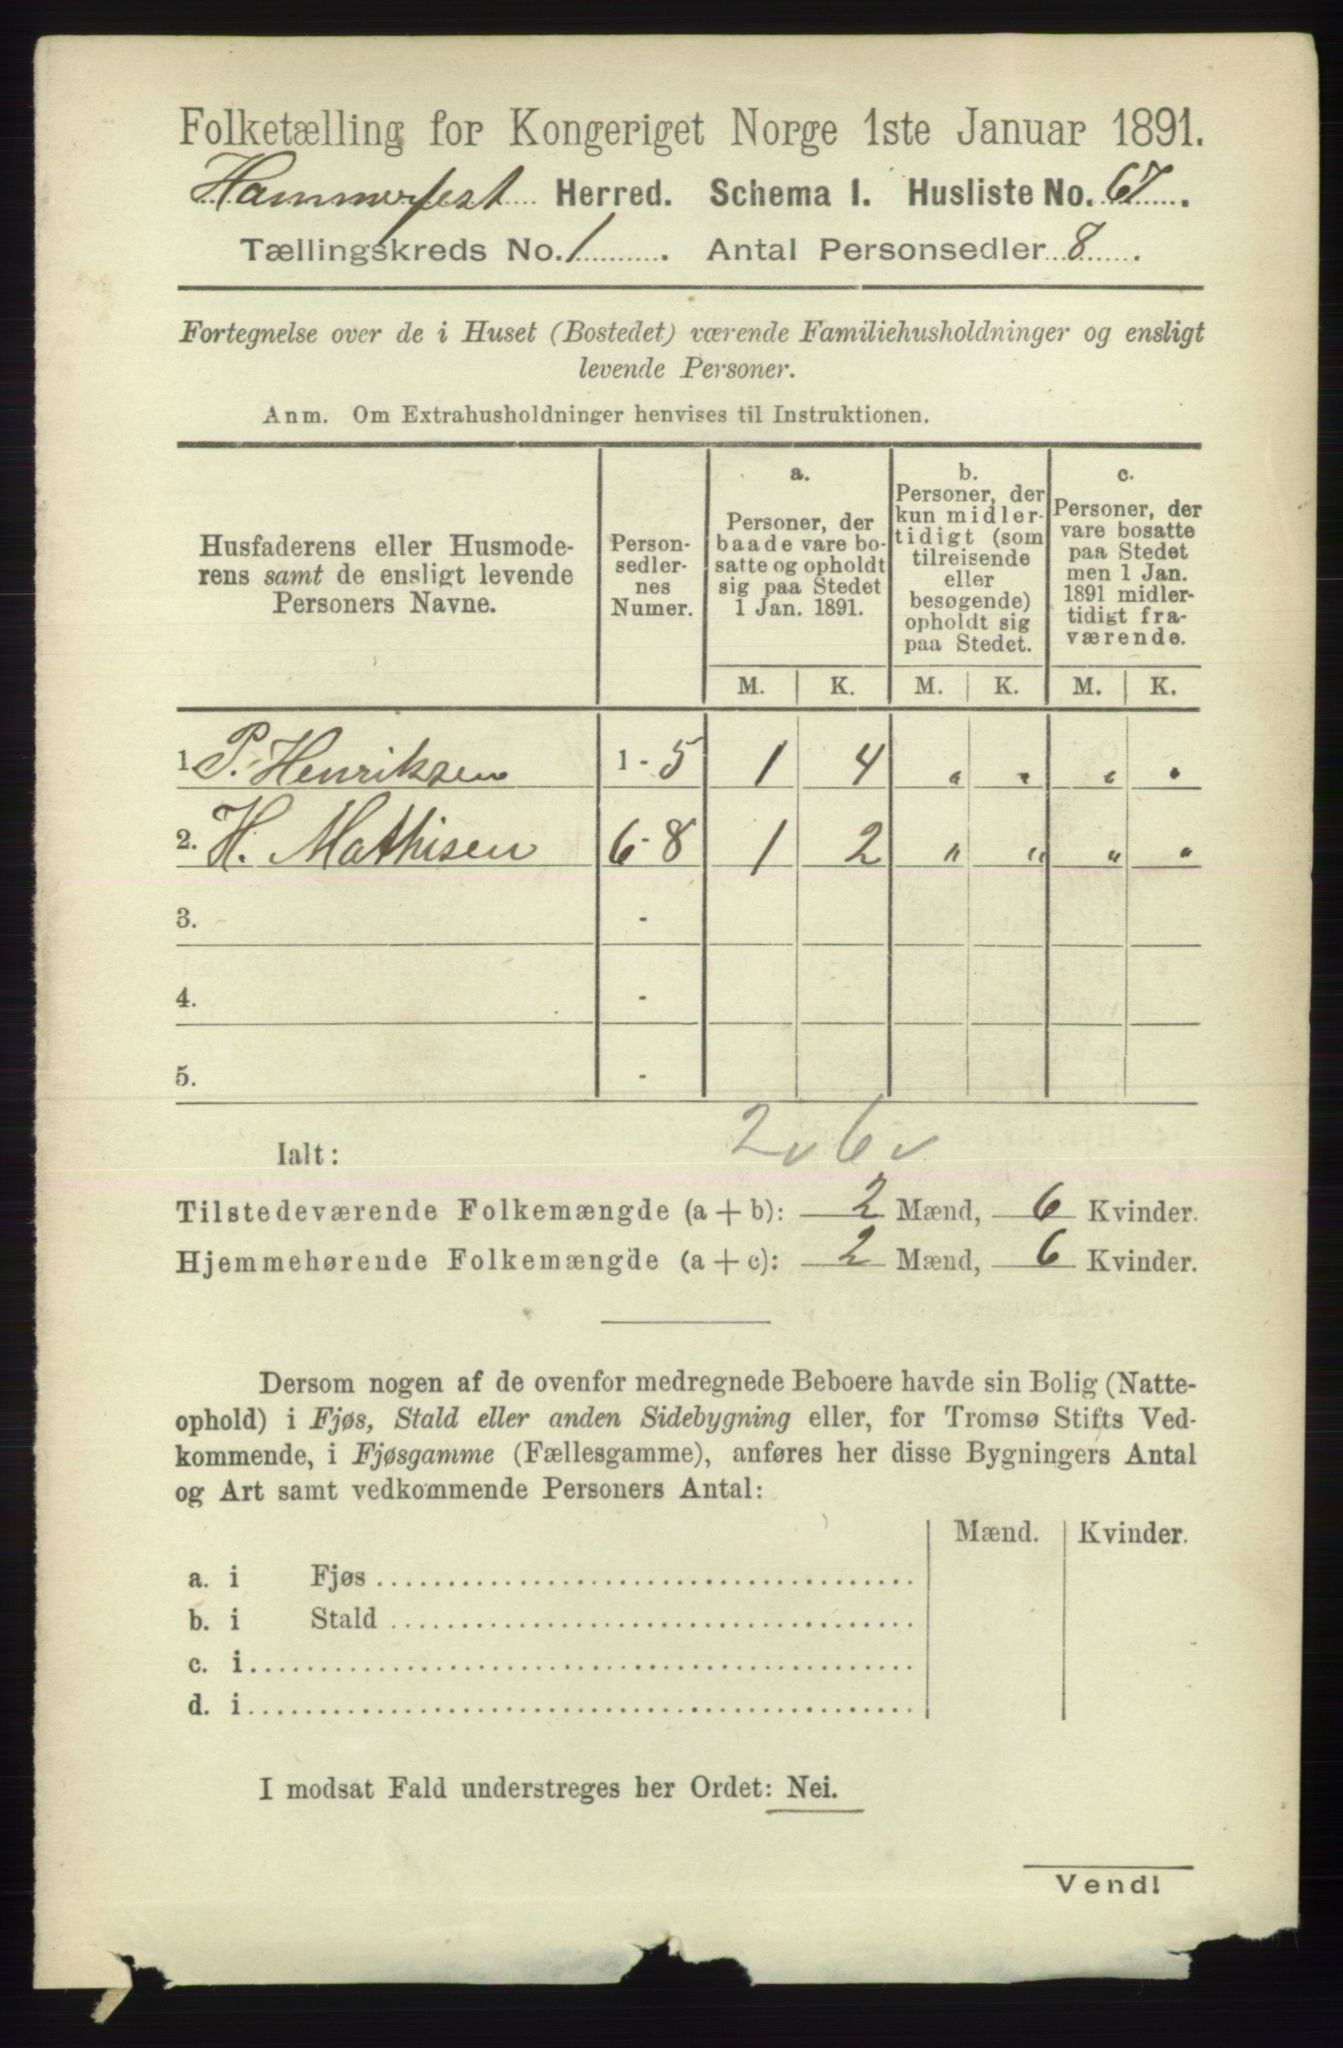 Folketælling for Kongeriget Norge 1ste Januar 1891.
Hammerfest Herred. Schema I. Husliste No. 67.
Tællingskreds No. 1. Antal Personsedler 8.
Fortegnelse over de i Huset (Bostedet) værende Familiehusholdninger og ensligt
levende Personer.
Anm. Om Extrahusholdninger henvises til Instruktionen.
Husfaderens eller Husmode-
rens samt de ensligt levende
Personers Navne.
Person-
sedler-
nes
Numer.
a.
Personer, der
baade vare bo-
satte og opholdt
sig paa Stedet
1 Jan. 1891.
b.
Personer, der
kun midler-
tidigt (som
tilreisende
eller
besøgende)
opholdt sig
paa Stedet.
c.
Personer, der
vare bosatte
paa Stedet
men 1 Jan.
1891 midler-
tidigt fra-
værende.
M. K. M. K. M. K.
1. P. Henriksen 1 - 5 1 4 " " " "
2. H. Mathisen 6 - 8 1 2 " " " "
3. -
4. -
5. -
Ialt: 2 v 6 v
Tilstedeværende Folkemængde (a + b): 2 Mænd, 6 Kvinder.
Hjemmehørende Folkemængde (a + c): 2 Mænd, 6 Kvinder.
Dersom nogen af de ovenfor medregnede Beboere havde sin Bolig (Natte-
ophold) i Fjøs, Stald eller anden Sidebygning eller, for Tromsø Stifts Ved-
kommende, i Fjøsgamme (Fællesgamme), anføres her disse Bygningers Antal
og Art samt vedkommende Personers Antal:
Mænd. Kvinder.
a. i Fjøs
b. i Stald
c. i
d. i
I modsat Fald understreges her Ordet: Nei.
Vend!